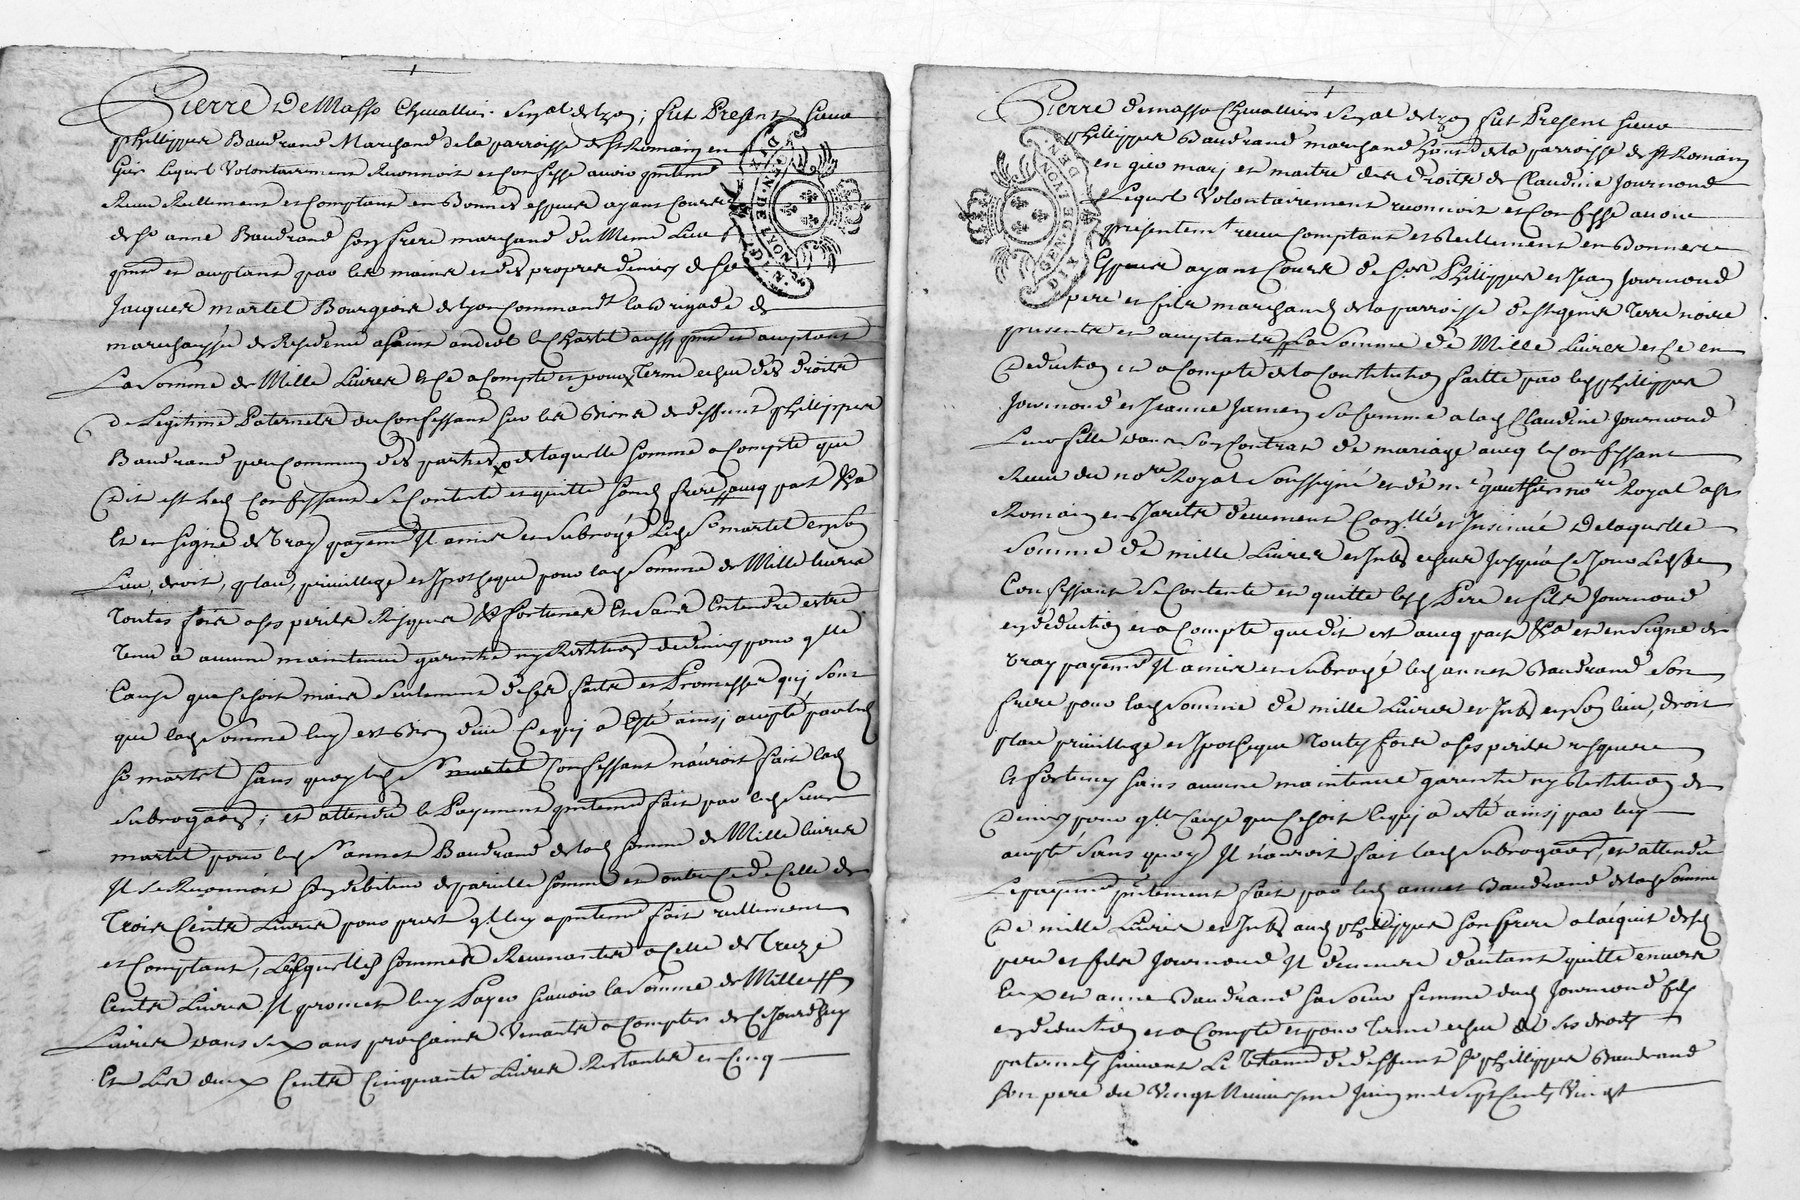 Pierre DeMasso Chevallier Senal de Lyon ; fut Present sieur
Phillippes Baudrand Marchand de la parroisse de St Romain en
Gier Lequel Volontairement Reconnoit et Confesse avoir
Reellement et Comptant en Bonnes espece ayant Cours
de Sr anne Baudrand son frere marchand du Meme Lieu
et acceptant par les mains et des propres deniers de Sr
Jacques martel Bourgeois de Lyon Command la Brigade de
marechaussée de Residence a saint andeol le Chastel aussy et acceptant
La Somme de Mille Livres Et Ce a Compte et pour Terme echeu des droits
de Legitime Paternels du Confessant sur les Biens de deffunt phillippes
Baudrand pere Commun des parties de laquelle somme a Compte que
Dit est Confessant se Contente et quitte frere avecq pact &a
Et en signe de vray payement Il a mis et Subrogé Led Sr martel en son
Lieu, droit, place, privillege et Ipotheque pour lad Somme de Mille livres
Toutes fois a ses perils Risques & fortunes Et sans Entendre estre
Tenu a aucune maintenue garentie ny Restitution deniers pour qlle
Cause que Ce soit mais seulement de ses faits et Promesses quy sont
que lad Somme luy est Bien düe Ce quy a Esté ainsy accepté par led
Sr martel sans quoy led Sr martel Confessant n'auroit fait lad
Subrogaõn ; et attendu le Payement fait par led Sieur
martel pour led Sr annet Baudrand de lad somme de Mille livres
Il se Reconnoit son debiteur de pareille somme et outre Ce de Celle de
Trois Cents Livres pour prest fait reellement
et Comptant, Lesquelles sommes Revenantes a Celle de Treize
Cents Livres Il promet luy Payer sçavoir la Somme de Mille
Livres dans six ans prochains Venants a Compter de Cejourdhuy
Et Les deux Cents Cinquante Livres Restantes en Cinq
Pierre demasso Chevallier Senal de Lyon fut Present sieur
phillippes Baudrand marchand de la parroisse de St Romain
en gier mary et maitre des droits de Claudine Journoud
Lequel Volontairement reconnoit et Confesse avoir
presentemt receu Comptant et Reellement en Bonnes
Especes ayant Cours de Srs Phillippes et Jean Journoud
pere et fils marchands de la parroisse de St genis Terre noire
presents et acceptants La Somme de Mille Livres et Ce en
Deduction et a Compte de la Constitution faitte par led phillippes
Journoud et Jeanne Jamen sa femme a lad Claudine Journoud
Leur fille dans son Contrat de mariage avecq le Confessant
Receu du nore Royal Soussigné et de me gauthier nore Royal a St
Romain en Jarets deuement Conllé et Insinué De laquelle
Somme de mille Livres et Ints echeus Jusqu'a Ce Jour Led Sr
Confessant se Contente et quitte lesd Pere et fils Journoud
en deduction et a Compte que dit est avecq pact &a et en signe de
vray payement Il a mis et subrogé led annet Baudrand son
frere pour lad Somme de mille Livres et Ints en son lieu, droit
place privillege et Ipotheque Toutes fois a ses perils risques
Et fortunes sans aucune maintenue garentie ny Restitution de
Deniers pour qlle Cause que Ce soit Ce quy a esté ainsy par luy
accepté sans quoy Il n'auroit fait lad Subrogaõn, et attendu
Le payement fait par led annet Baudrand de lad somme
De mille Livres et Ints aud phillippes son frere a l'acquit desd
pere et fils Journoud Il demeure d'autant quitte envers
Eux et anne Baudrand sa soeur femme dud Journoud fils
en deduction et a Compte et pour Terme echeu de ses droits
paternels suivant Le Testament de deffunt Sr phillippes Baudrand
son pere du Vingt Neuviesme Juin mil sept Cents Vingt
GEN · DE · LYON